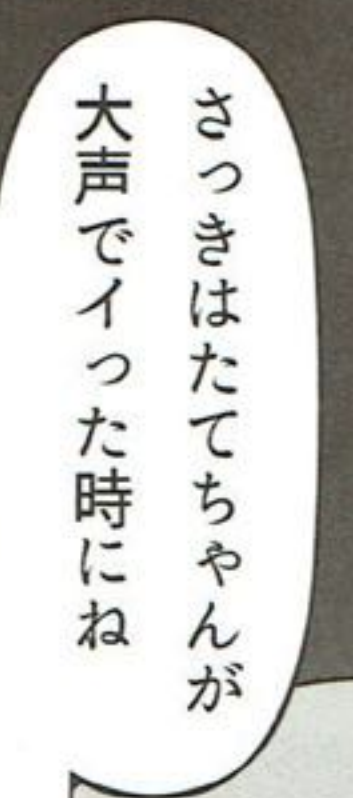 さっきはたてちゃんが
大声でイった時にね